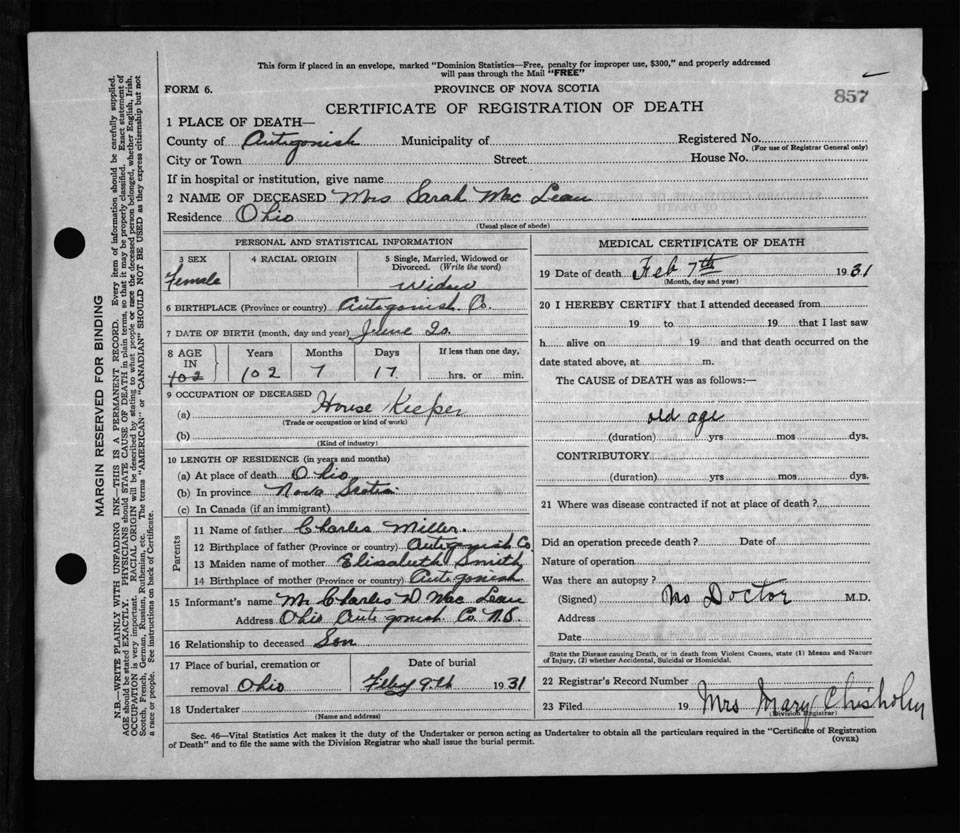 This form if placed in an envelope, marked "Dominion Statistics—Free, penalty for improper use, $300," and properly addressed
will pass through the Mail "FREE"
857
FORM 6.
PROVINCE OF NOVA SCOTIA
CERTIFICATE OF REGISTRATION OF DEATH
1 PLACE OF DEATH—
County of Antigonish Municipality of Registered No.
(For use of Registrar General only)
City or Town Street House No.
If in hospital or institution, give name
2 NAME OF DECEASED Mrs Sarah Mac Lean
Residence Ohio
(Usual place of abode)
PERSONAL AND STATISTICAL INFORMATION
3 SEX 4 RACIAL ORIGIN 5 Single, Married, Widowed or
Divorced. (Write the word)
Female Widow
6 BIRTHPLACE (Province or country) Antigonish Co.
7 DATE OF BIRTH (month, day and year) June 20.
8 AGE Years Months Days If less than one day,
IN
102 102 7 17 hrs. or min.
9 OCCUPATION OF DECEASED
(a) House Keeper
(Trade or occupation or kind of work)
(b)
(Kind of industry)
10 LENGTH OF RESIDENCE (in years and months)
(a) At place of death Ohio
(b) In province Nova Scotia
(c) In Canada (if an immigrant)
Parents
11 Name of father Charles Miller.
12 Birthplace of father (Province or country) Antigonish Co
13 Maiden name of mother Elisabeth Smith
14 Birthplace of mother (Province or country) Antigonish.
15 Informant's name Mr Charles D Mac Lean
Address Ohio Antigonish Co. N.S.
16 Relationship to deceased Son
17 Place of burial, cremation or Date of burial
removal Ohio Feby 9th 1931
18 Undertaker
(Name and address)
MEDICAL CERTIFICATE OF DEATH
19 Date of death Feb 7th 1931
(Month, day and year)
20 I HEREBY CERTIFY that I attended deceased from
19 to 19 that I last saw
h alive on 19 and that death occurred on the
date stated above, at m.
The CAUSE of DEATH was as follows:—
old age
(duration) yrs mos dys.
CONTRIBUTORY
(duration) yrs mos dys.
21 Where was disease contracted if not at place of death?
Did an operation precede death? Date of
Nature of operation
Was there an autopsy?
(Signed) No Doctor M.D.
Address
Date
State the Disease causing Death, or in death from Violent Causes, state (1) Means and Nature
of Injury, (2) whether Accidental, Suicidal or Homicidal.
22 Registrar's Record Number
23 Filed 19 Mrs Mary Chisholm
(Division Registrar)
Sec. 46—Vital Statistics Act makes it the duty of the Undertaker or person acting as Undertaker to obtain all the particulars required in the "Certificate of Registration
of Death" and to file the same with the Division Registrar who shall issue the burial permit.
(OVER)
MARGIN RESERVED FOR BINDING
N.B.—WRITE PLAINLY WITH UNFADING INK—THIS IS A PERMANENT RECORD. Every item of information should be carefully supplied.
AGE should be stated EXACTLY. PHYSICIANS should STATE CAUSE OF DEATH in plain terms, so that it may be properly classified. Exact statement of
OCCUPATION is very important. RACIAL ORIGIN will be described by stating to what people or race the deceased person belonged, whether English, Irish,
Scotch, French, German, Russian, Ruthenian, etc. The terms "AMERICAN" or "CANADIAN" SHOULD NOT BE USED as they express citizenship but not
a race or people. See instructions on back of Certificate.